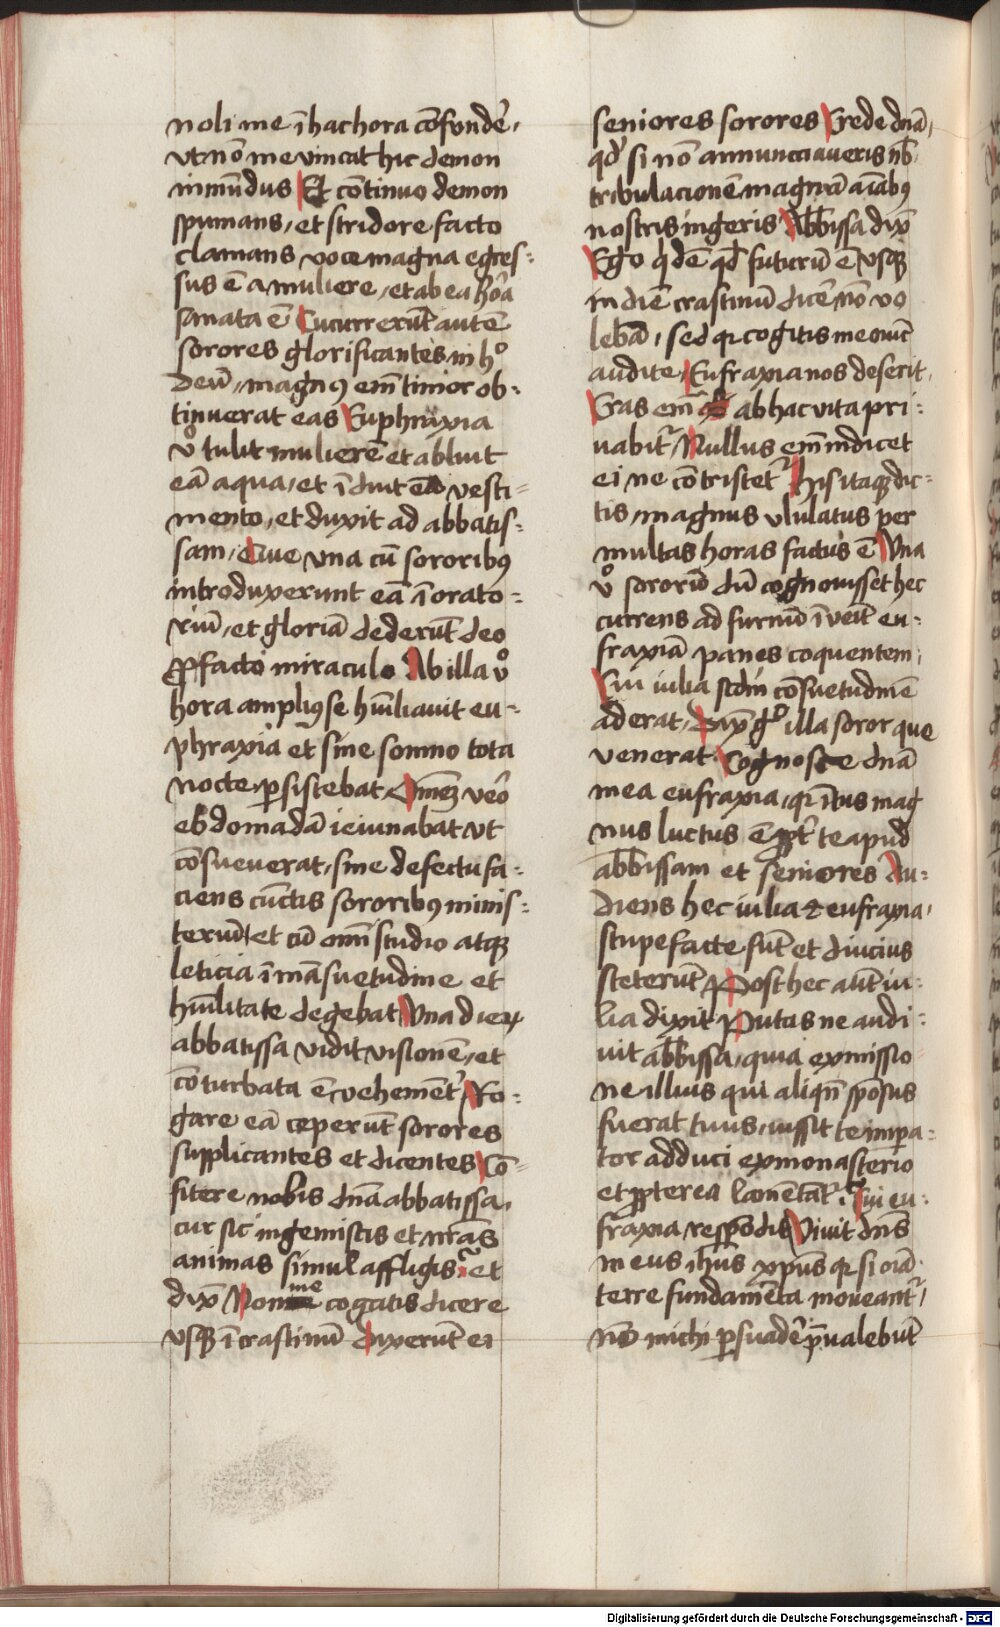 noli me ī hac hora cōfvnde᷑,
vt nō me vincat hic demon
inmūdus Et cōtinuo demon
spumans, et stridore facto
clamans voce magna egres-
sus ē a muliere, et ab ea hora
sanata ē Cucurrerūt autē
sorores glorificantes in hͦ
deū, magnꝰ em̄ timor ob-
tinuerat eas Euphraxia
vͦ tulit mulierē et abluit
eā aqua, et īduit eā vesti-
mento, et duxit ad abbatis-
sam, Que vna cū sororibꝰ
introduxerunt eā ī orato-
riū, et gloriā dederūt deo
ꝓ facto miraculo Ab illa vͦ
hora ampliꝰ se hūiliauit eu-
phraxia et sine somno tota
nocte ꝑsistebat Omnē vero
ebdomadā ieiunabat vt
cōsueuerat, sine defectu fa-
ciens cūctis sororibꝰ minis-
teriū, et cū omī studio atqꝫ
leticia ī māsuetudine et
hūilitate degebat Vna dierꝝ
abbatissa vidit visionē, et
cōturbata ē vehemēt᷑ Ro-
gare eā ceperūt sorores
supplicantes et dicentes Cō-
fitere nobis dn̄a abbatissa,
cur sic ingemiscis et nr̄as
animas simul affligis et
dix̄ Non me cogatis dicere
vsqꝫ ī crastinū Dixerūt ei
seniores sorores Crede dn̄a,
qd᷑ si nō annunciaueris nb̄
tribulacionē magnā aīabꝰ
nostris ingeris Abb̄issa dix̄
Ego qͥdē qd᷑ futurū ē vsqꝫ
in diē crastinū dice᷑ nō vo
lebā, sed qꝛ cogitis me oīnt
audite, Eufraxia nos deserit,
Cras em̄ ab hac vita pri-
uabit᷑, Nullus em̄ indicet
ei ne cōtristet᷑ His itaqꝫ dic-
tis, magnus vlulatus per
multas horas factus ē Vna
vͦ sororū dū cognouisset hec
currens ad furnū īveīt eu-
fraxiā panes coquentem,
Cui iulia scdm̄ cōsuetudinē
aderat, Dix̄ gͦ illa soror que
venerat Cognosce dn̄a
mea eufraxia, qꝛ ītus mag
nus luctus ē ꝓpt᷑ te apud
abb̄issam et seniores Au-
diens hec iulia ⁊ eufraxia,
stupefacte sūt et diucius
steterūt Post hec aūt iu-
lia dixit Putas ne audi-
uit abb̄issa, quia ex missio
ne illius qui aliqn̄ spōsus
fuerat tuus, iussit te impa-
tor adduci ex monasterio
et ꝓpterea lamētat᷑, Cui eu-
fraxia respōdit Viuit dn̄s
meus ih̄us xp̄us qꝛ si oīa
terre fundamēta moueant᷑,
nō michi ꝑsuade᷑ p̄ualebūt
Digitalisierung gefördert durch die Deutsche Forschungsgemeinschaft - DFG